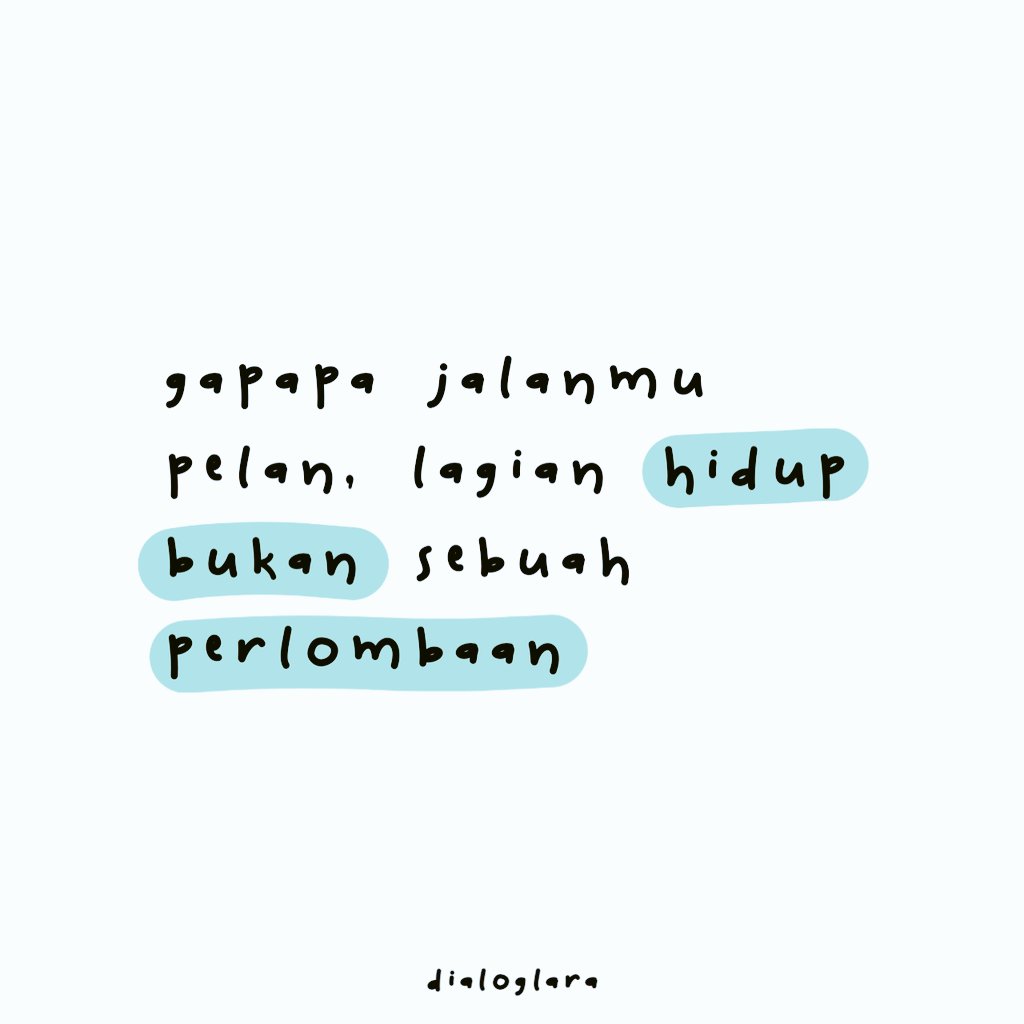 gapapa jalanmu
pelan, lagian hidup
bukan sebuah
perlombaan
dialoglara